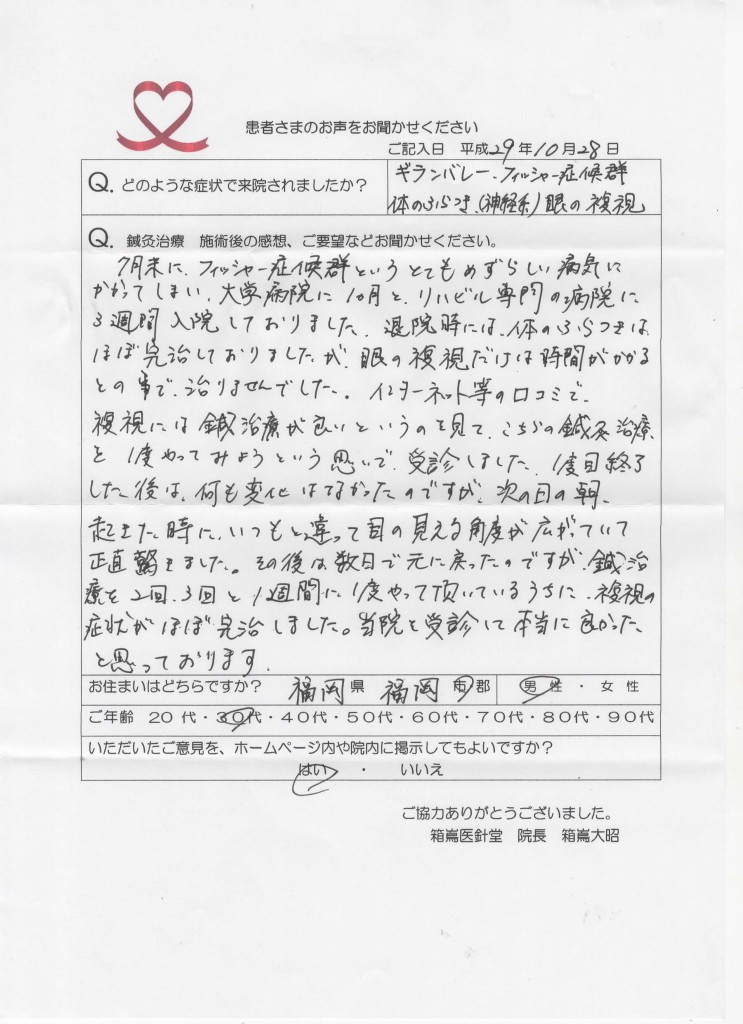 患者さまのお声をお聞かせください
ご記入日 平成29年10月28日
Q. どのような症状で来院されましたか?
ギランバレー・フィッシャー症候群
体のふらつき(神経系)眼の複視
Q. 鍼灸治療 施術後の感想、ご要望などお聞かせください。
7月末に、フィッシャー症候群というとてもめずらしい病気に
かかってしまい、大学病院に10月と、リハビリ専門の病院に
3週間入院しておりました。退院時には、体のふらつきは
ほぼ完治しておりましたが、眼の複視だけは時間がかかる
との事で、治りませんでした。インターネット等の口コミで、
複視には鍼治療が良いというのを見て、こちらの鍼灸治療
を1度やってみようという思いで、受診しました。1度目終了
した後は、何も変化はなかったのですが、次の日の朝、
起きた時に、いつもと違って目の見える角度が広がっていて
正直驚きました。その後は数日で元に戻ったのですが、鍼治
療を2回、3回と1週間に1度やって頂いているうちに、複視の
症状がほぼ完治しました。当院を受診して本当に良かった
と思っております。
お住まいはどちらですか? 福岡県 福岡市郡 男性・女性
ご年齢 20代・30代・40代・50代・60代・70代・80代・90代
いただいたご意見を、ホームページ内や院内に掲示してもよいですか?
はい ・ いいえ
ご協力ありがとうございました。
箱嶌医針堂 院長 箱嶌大昭